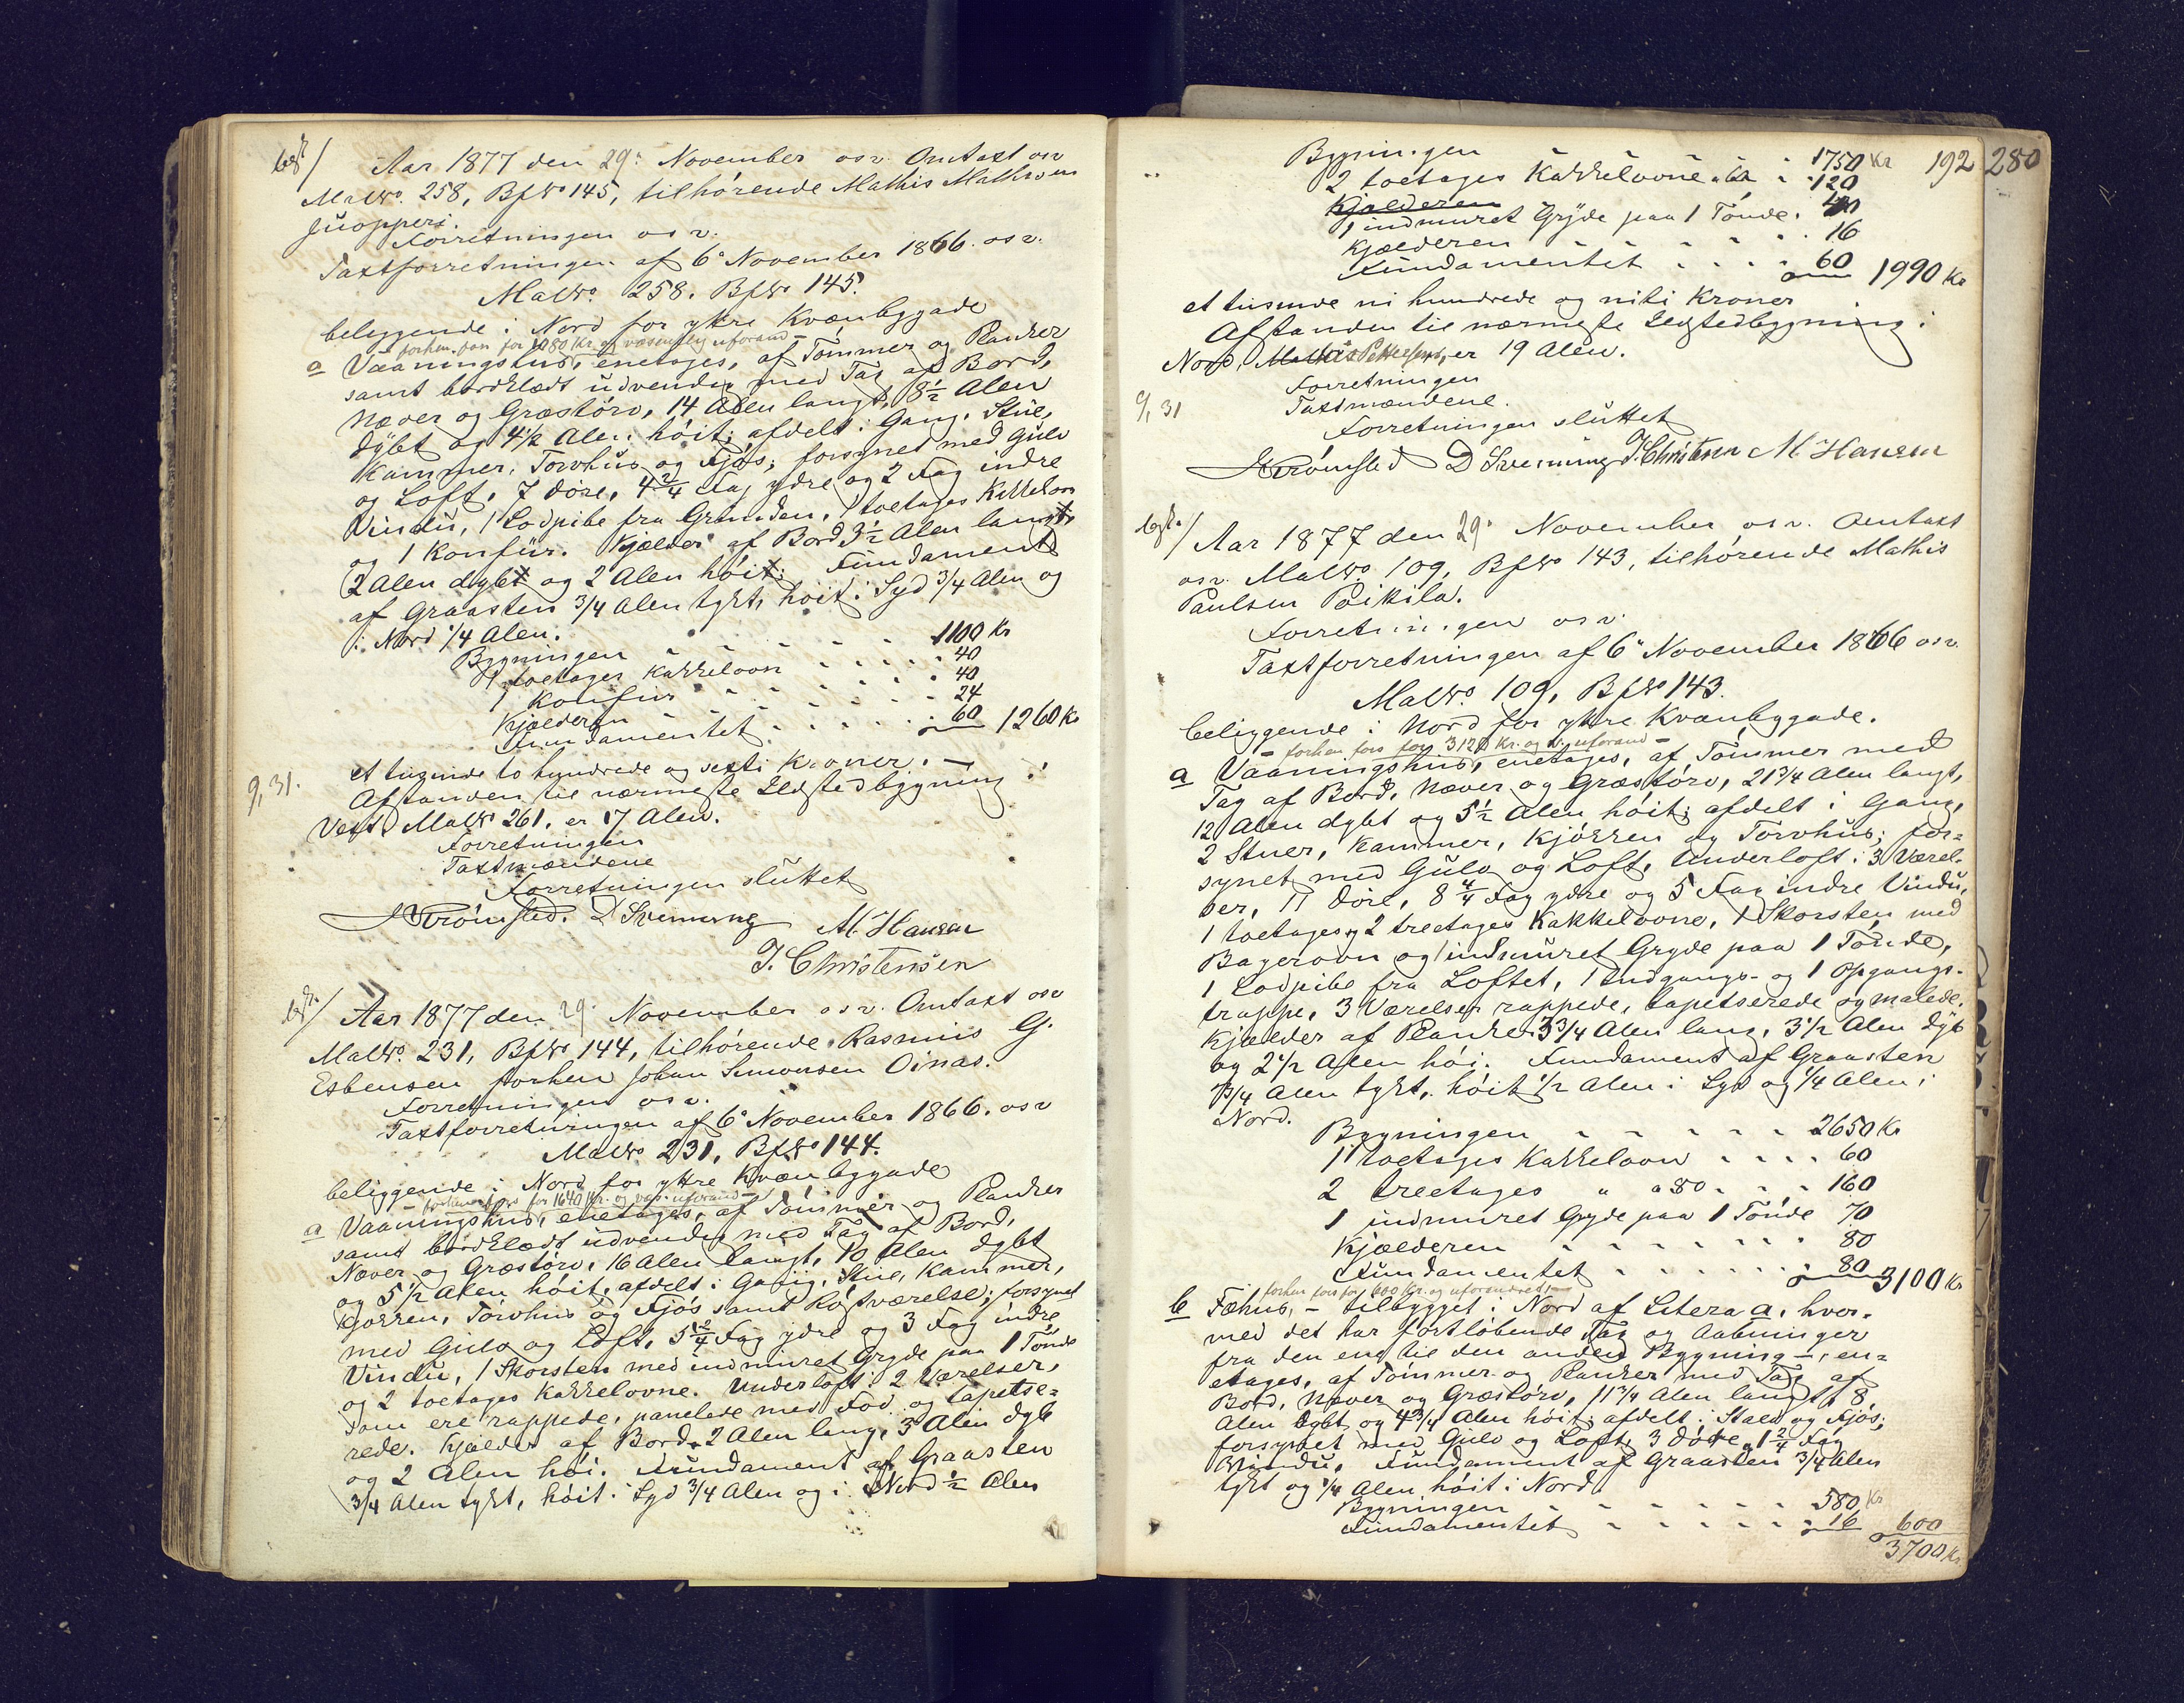 Aar 1877 den 29: November osv. Omtaxt osv
MatNo. 258, BfNo 145, tilhørende Mathis Mathisen
Juopperi.
Forretningen osv.
Taxtforretningen af 6e November 1866. osv.
MatNo. 258. BfNo 145.
beliggende i Nord for ytre Kvænbygade
forhen fors for 1080 Kr. og væsentlig uforand-
a Vaaningshus, enetages, af Tømmer og Planker
samt bordklædt udvendig med Tag af Bord,
Næver og Græstørv, 14 Alen langt, 8½ Alen
dybt og 4½ Alen høit; afdelt i Gang, Stue,
Kammer, Torvhus og Fjøs; forsynet med Gulv
og Loft, 7 Døre, 4 2/4 Fag ydre og 2 Fag indre
Vindu, 1 Lodpibe fra Grunden, 1 toetages Kakkelovn
og 1 Komfur. Kjælder af Bord 3½ Alen langt,
2 Alen dybt og 2 Alen høit; Fundament
af Graasten 3/4 Alen tykt, høit i Syd 3/4 Alen og
i Nord 1/4 Alen.
Bygningen - - - - - - 1100 Kr
1 toetages Kakkelovn - - - - - 40
1 Komfur - - - - - - 40
Kjælderen - - - - - - 24
Fundamentet - - - - - - 60 1260 Kr
et tusinde to hundrede og sexti Kroner. -
9,31. Afstanden til nærmeste Ildstedbygning i
Vest, MatNo 261, er 17 Alen.
Forretningen
Taxtmændene
Forretningen sluttet
D Svenning M. Hansen
J. Christensen
Aar 1877 den 29. November osv. Omtaxt osv
MatNo. 231, BfNo 144, tilhørende Rasmus G.
Esbensen forhen Johan Simonsen Oinas.
Forretningen osv.
Taxtforretningen af 6e November 1866. osv
MatNo 231, BfNo 144.
beliggende i Nord for ytre Kvænbygade
- forhen fors for 1640 Kr. og væs. uforand -
a Vaaningshus, enetages, af Tømmer og Planker
samt bordklædt udvendig med Tag af Bord,
Næver og Græstørv, 16 Alen langt, 10 Alen dybt
og 5½ Alen høit, afdelt i Gang, Stue, Kammer,
Kjøkken, Torvhus og Fjøs samt Røstværelse; forsynet
med Gulv og Loft, 5 2/4 Fag ydre og 3 Fag indre
Vindu, 1 Skorsten med indmuret Gryde paa 1 Tønde
og 2 toetages Kakkelovne. Underloft i 2 Værelser,
som ere rappede, panelede med Fod og tapetse-
rede. Kjælder af Bord, 2 Alen lang, 3 Alen dyb
og 2 Alen høi. Fundament af Graasten
3/4 Alen tykt, høit i Syd 3/4 Alen og i Nord ½ Alen
192 280
Bygningen 1750 Kr
2 toetages Kakkelovne - - - 120
Kjælderen
1 indmuret Gryde paa 1 Tønde.
Kjælderen - - - - - - 16
Fundamentet - - - - 60 1990 Kr
et tusinde ni hundrede og niti Kroner
Afstanden til nærmeste Ildstedbygning i
Nord, Pettersens, er 19 Alen.
Forretningen
9,31 Taxtmændene.
Forretningen sluttet
D Svenning J. Christensen M Hansen
Aar 1877 den 29. November osv. Omtaxt
osv. MatNo. 109, BfNo 143, tilhørende Mathis
Paulsen Poikila.
Forretningen osv.
Taxtforretningen af 6e November 1866 osv.
MatNo. 109, BfNo 143.
beliggende i Nord for ytre Kvænbygade.
- forhen fors for 3120 Kr. og v. uforand -
a Vaaningshus, enetages, af Tømmer med
Tag af Bord, Næver og Græstørv, 21 3/4 Alen langt,
12 Alen dybt og 5½ Alen høit; afdelt i Gang,
2 Stuer, Kammer, Kjøkken og Torvhus; for-
synet med Gulv og Loft, Underloft i 3 Værel-
ser, 11 Døre, 8 4/4 Fag ydre og 5 Fag indre Vindu,
1 toetages og 2 treetages Kakkelovne, 1 Skorsten med
Bagerovn og indmuret Gryde paa 1 Tønde,
1 Lodpibe fra Loftet, 1 Indgangs- og 1 Opgangs-
trappe, 3 Værelser rappede, tapetserede og malede.
Kjælder af Planker 3 3/4 Alen lang, 3½ Alen dyb
og 2½ Alen høi. Fundament af Graasten
3/4 Alen tykt, høit ½ Alen i Syd og 1/4 Alen i
Nord.
Bygningen - - - - - 2650 Kr
1 toetages Kakkelovn - - - - 60
2 treetages " a 80 - - - 160
1 indmuret Gryde paa 1 Tønde 70
Kjælderen - - - - - - - 80
Fundamentet - - - - - - - 80 3100 Kr
forhen fors for 600 Kr. og uforandret -
b Fæhus, - tilbygget i Nord af Litera a, hvor-
med det har fortløbende Tag og Aabninger
fra den ene til den anden Bygning -, en-
etages, af Tømmer og Planker med Tag af
Bord, Næver og Græstørv, 11 3/4 Alen langt, 8
Alen dybt og 4 3/4 Alen høit; afdelt i Stald og Fjøs;
forsynet med Gulv og Loft, 3 Døre, 1 2/4 Fag
Vindu, Fundament af Graasten 3/4 Alen
tykt og 1/4 Alen høit i Nord.
Bygningen - - - - - - 580 Kr
Fundamentet - - - - - - 16 600
3700 Kr